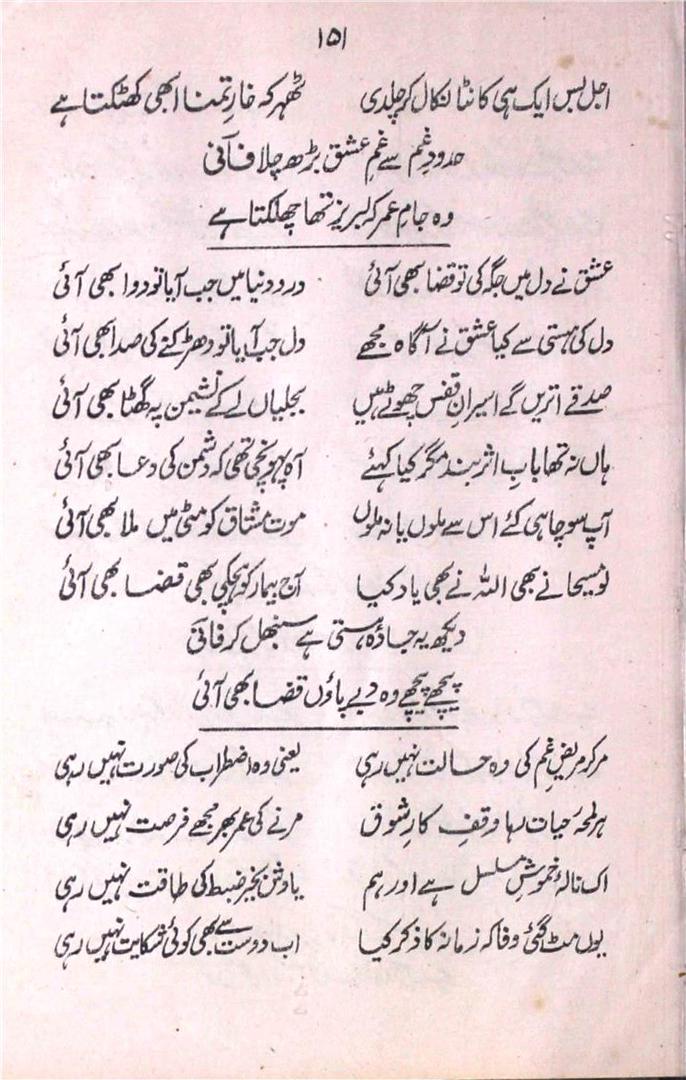 ۱۵۱
اجل بس ایک ہی کانٹا نکال کر چلدی ٹھہر کہ خارِ تمنا ابھی کھٹکتا ہے
حدودِ غم سے غمِ عشق بڑھ چلا فانی
وہ جامِ عمر کہ لبریز تھا چھلکتا ہے
عشق نے دل میں جگہ کی تو قضا بھی آئی درد دنیا میں جب آیا تو دوا بھی آئی
دل کی ہستی سے کیا عشق نے آگاہ مجھے دل جب آیا تو دھڑکنے کی صدا بھی آئی
صدقے اتریں گے اسیرانِ قفس چھوٹے ہیں بجلیاں لے کے نشیمن پہ گھٹا بھی آئی
ہاں نہ تھا بابِ اثر بند مگر کیا کہئے آہ پہونچی تھی کہ دشمن کی دعا بھی آئی
آپ سوچا ہی کئے اس سے ملوں یا نہ ملوں موت مشتاق کو مٹی میں ملا بھی آئی
لو مسیحا نے بھی اللہ نے بھی یاد کیا آج بیمار کو ہچکی بھی قضا بھی آئی
دیکھ یہ جادۂ ہستی ہے سنبھل کر فانی
پیچھے پیچھے وہ دبے پاؤں قضا بھی آئی
مر کر مریضِ غم کی وہ حالت نہیں رہی یعنی وہ اضطراب کی صورت نہیں رہی
ہر لمحۂ حیات رہا وقفِ کارِ شوق مرنے کی عمر بھر مجھے فرصت نہیں رہی
اک نالۂ خموشِ مسلسل ہے اور ہم یادش بخیر ضبط کی طاقت نہیں رہی
یوں مٹ گئی وفا کہ زمانہ کا ذکر کیا اب دوست سے بھی کوئی شکایت نہیں رہی